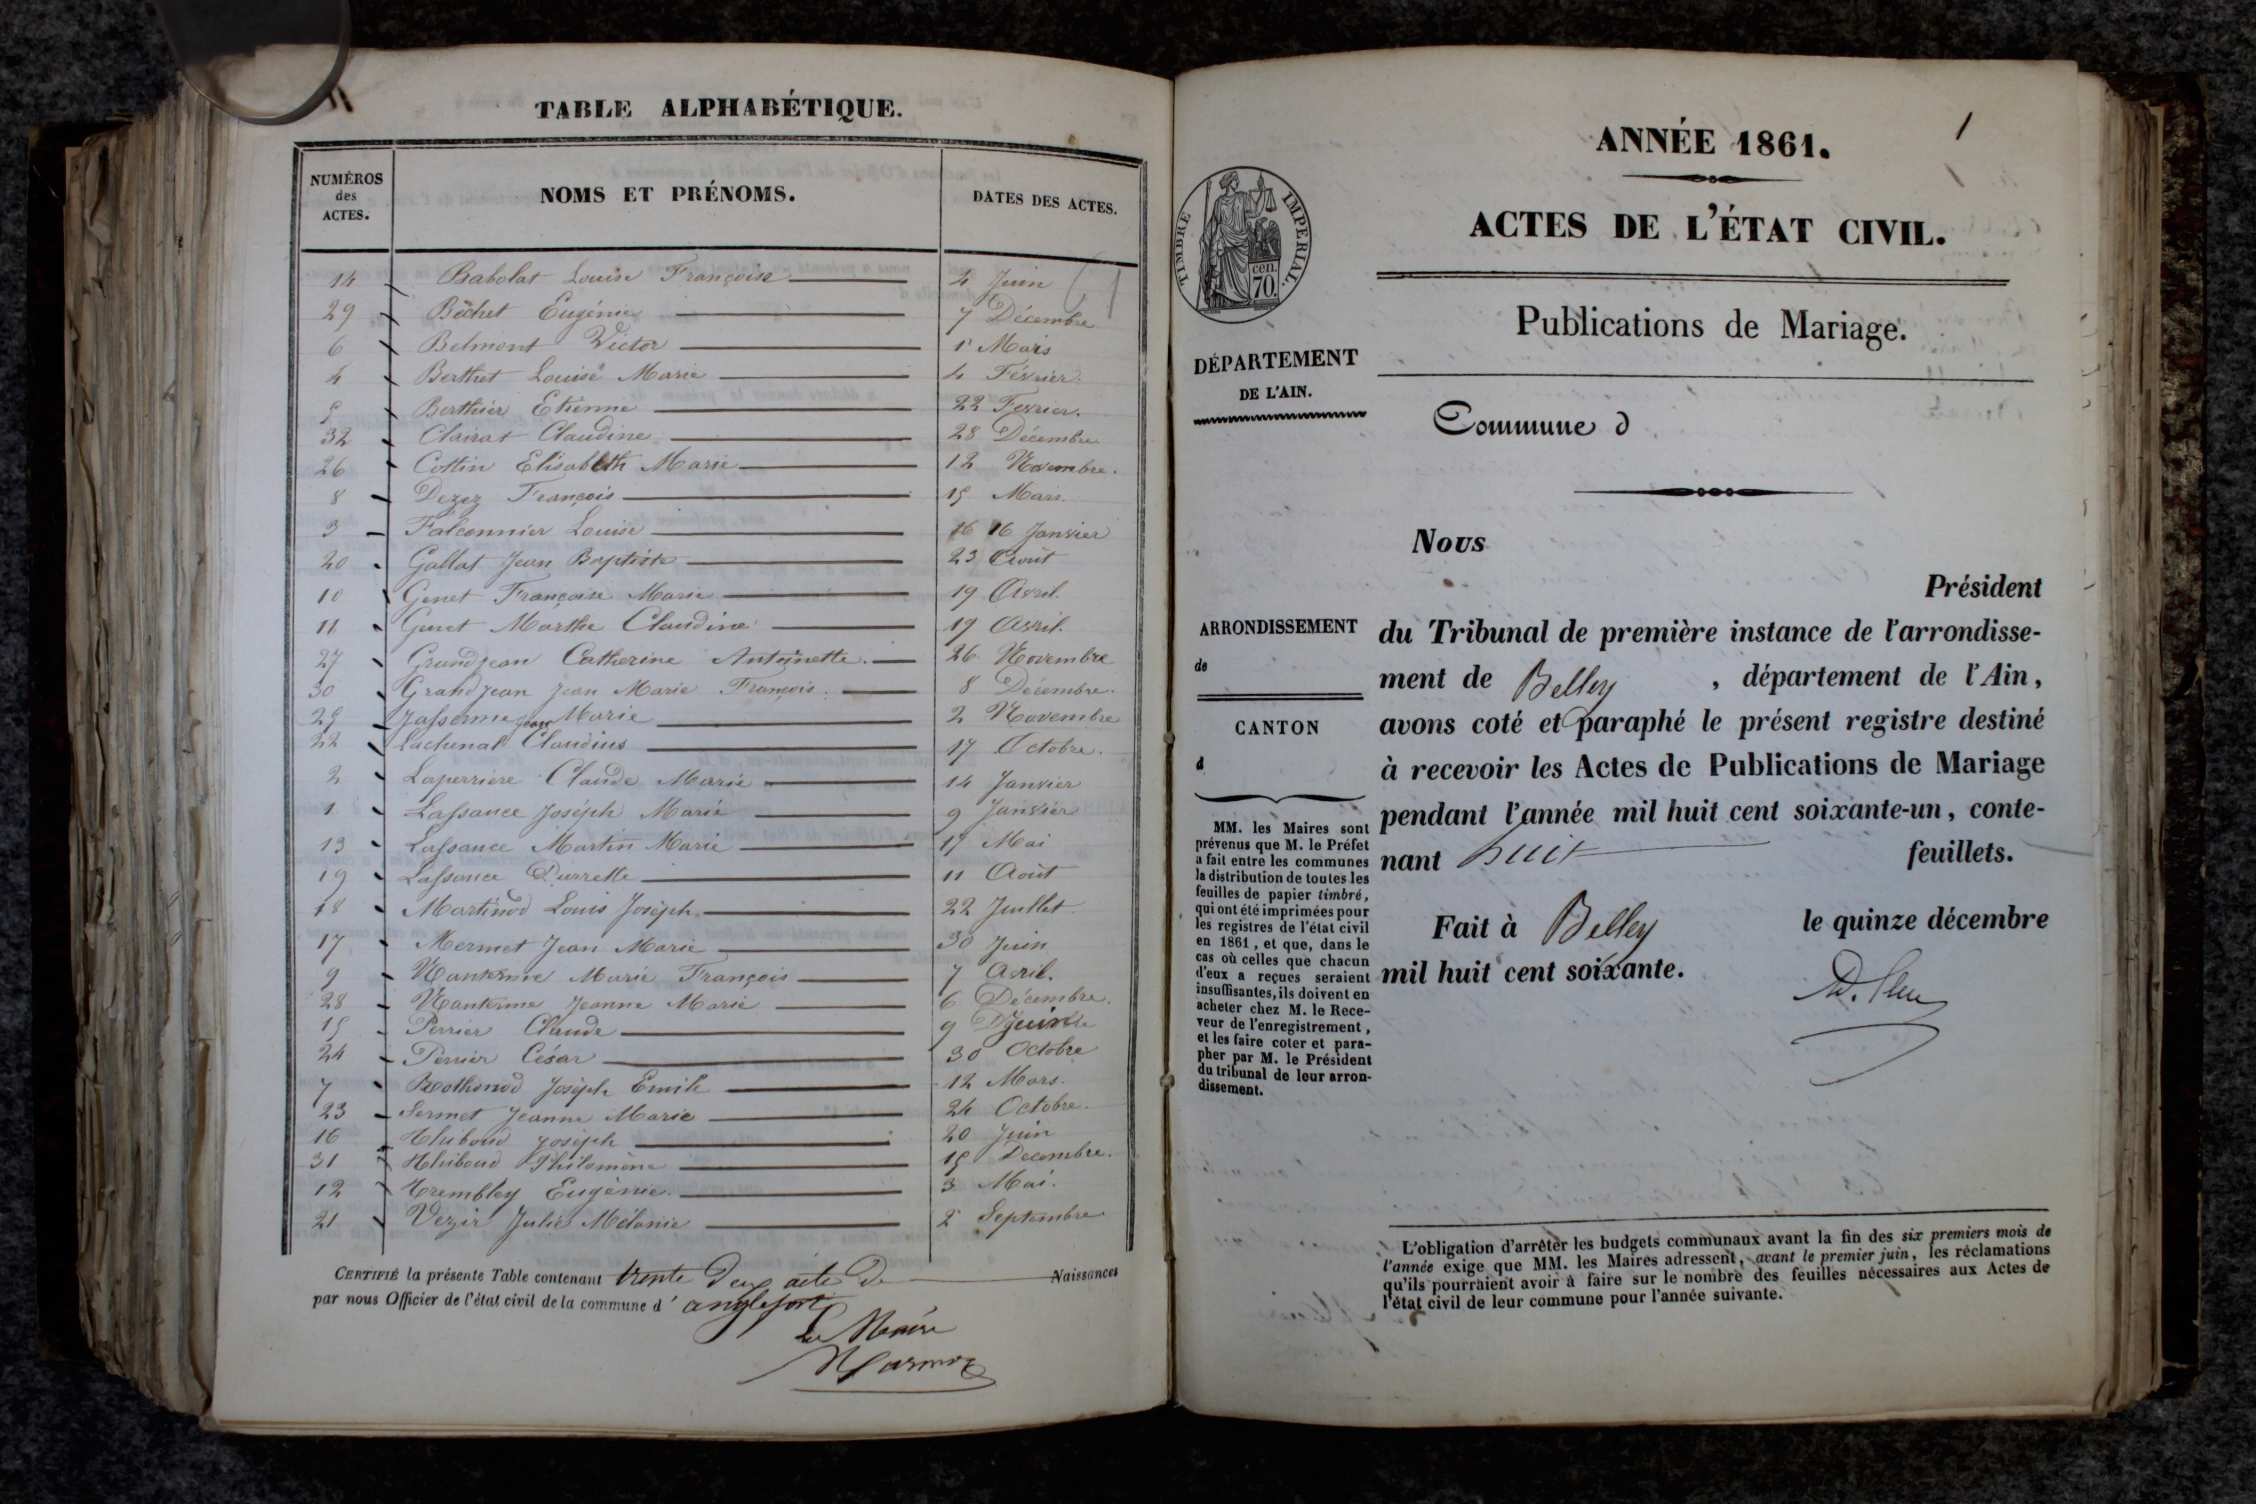 TABLE ALPHABÉTIQUE.
NUMÉROS des ACTES.
NOMS ET PRÉNOMS.
DATES DES ACTES.
14 Babolat Louise Françoise 4 Juin
29 Béchet Eugénie 7 Décembre
6 Belmont Victor 1er Mars
4 Berthet Louise Marie 4 Février
5 Berthier Etienne 22 Février.
32 Clairat Claudine 28 Décembre
26 Cottin Elisabeth Marie 12 Novembre.
8 Dezez François 15 Mars.
3 Falconnier Louise 16 16 Janvier
20 Gallat Jean Baptiste 23 Août
10 Genet Françoise Marie 19 Avril.
11 Genet Marthe Claudine 19 Avril.
27 Grandjean Catherine Antoinette. 26 Novembre
30 Grandjean Jean Marie François. 8 Décembre.
25 Jasserme Jean Marie 2 Novembre
22 Lachenal Claudius 17 Octobre.
2 Laperriere Claude Marie 14 Janvier
1 Lassance Joseph Marie 9 Janvier
13 Lassance Martin Marie 17 Mai
19 Lassance Pierrette 11 Août
18 Martinod Louis Joseph 22 Juillet
17 Mermet Jean Marie 30 Juin
9 Nanterme Marie François 7 Avril.
28 Nanterme Jeanne Marie 6 Décembre.
15 Perrier Claude 9 Juin
24 Perrier César 30 Octobre
7 Rothonod Joseph Emile 12 Mars.
23 Sermet Jeanne Marie 24 Octobre.
16 Thiboud Joseph 20 Juin
31 Thiboud Philomène 15 Décembre.
12 Trembley Eugénie. 3 Mai.
21 Vezir Julie Mélanie 2 Septembre
CERTIFIÉ la présente Table contenant trente deux acte de Naissances
par nous Officier de l'état civil de la commune d' anglefort
Le Maire
1
ANNÉE 1861.
ACTES DE L'ÉTAT CIVIL.
TIMBRE IMPERIAL.
cen.
70.
Publications de Mariage.
DÉPARTEMENT
DE L'AIN.
Commune d
Nous
Président
ARRONDISSEMENT
de
CANTON
d
du Tribunal de première instance de l'arrondisse-
ment de Belley, département de l'Ain,
avons coté et paraphé le présent registre destiné
à recevoir les Actes de Publications de Mariage
pendant l'année mil huit cent soixante-un, conte-
nant huit feuillets.
Fait à Belley le quinze décembre
mil huit cent soixante.
MM. les Maires sont
prévenus que M. le Préfet
a fait entre les communes
la distribution de toutes les
feuilles de papier timbré,
qui ont été imprimées pour
les registres de l'état civil
en 1861, et que, dans le
cas où celles que chacun
d'eux a reçues seraient
insuffisantes, ils doivent en
acheter chez M. le Rece-
veur de l'enregistrement,
et les faire coter et para-
pher par M. le Président
du tribunal de leur arron-
dissement.
L'obligation d'arrêter les budgets communaux avant la fin des six premiers mois de
l'année exige que MM. les Maires adressent, avant le premier juin, les réclamations
qu'ils pourraient avoir à faire sur le nombre des feuilles nécessaires aux Actes de
l'état civil de leur commune pour l'année suivante.